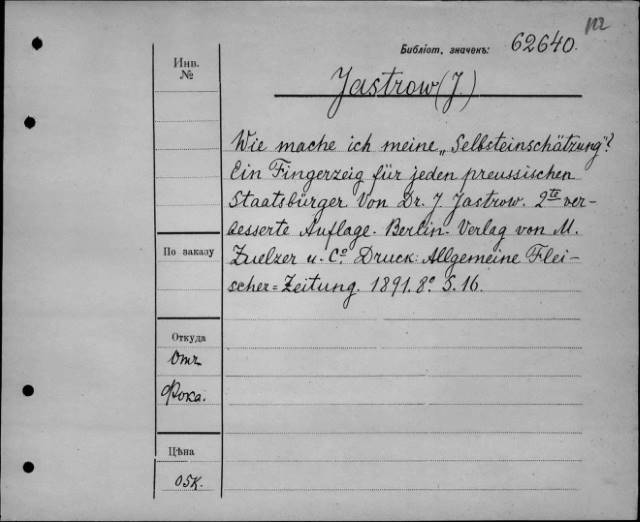 Библіот. значекъ: 62640.
Jastrow (J.)
Инв.
№
Wie mache ich meine „Selbsteinschätzung"?
Ein Fingerzeig für jeden preussischen
Staatsbürger Von Dr. J. Jastrow. 2te ver-
besserte Auflage. Berlin. Verlag von M.
По заказу
Zuelzer u. Co. Druck: Allgemeine Flei-
scher=Zeitung. 1891. 8o. S. 16.
Откуда
Отъ
Фока.
Цѣна
05к.